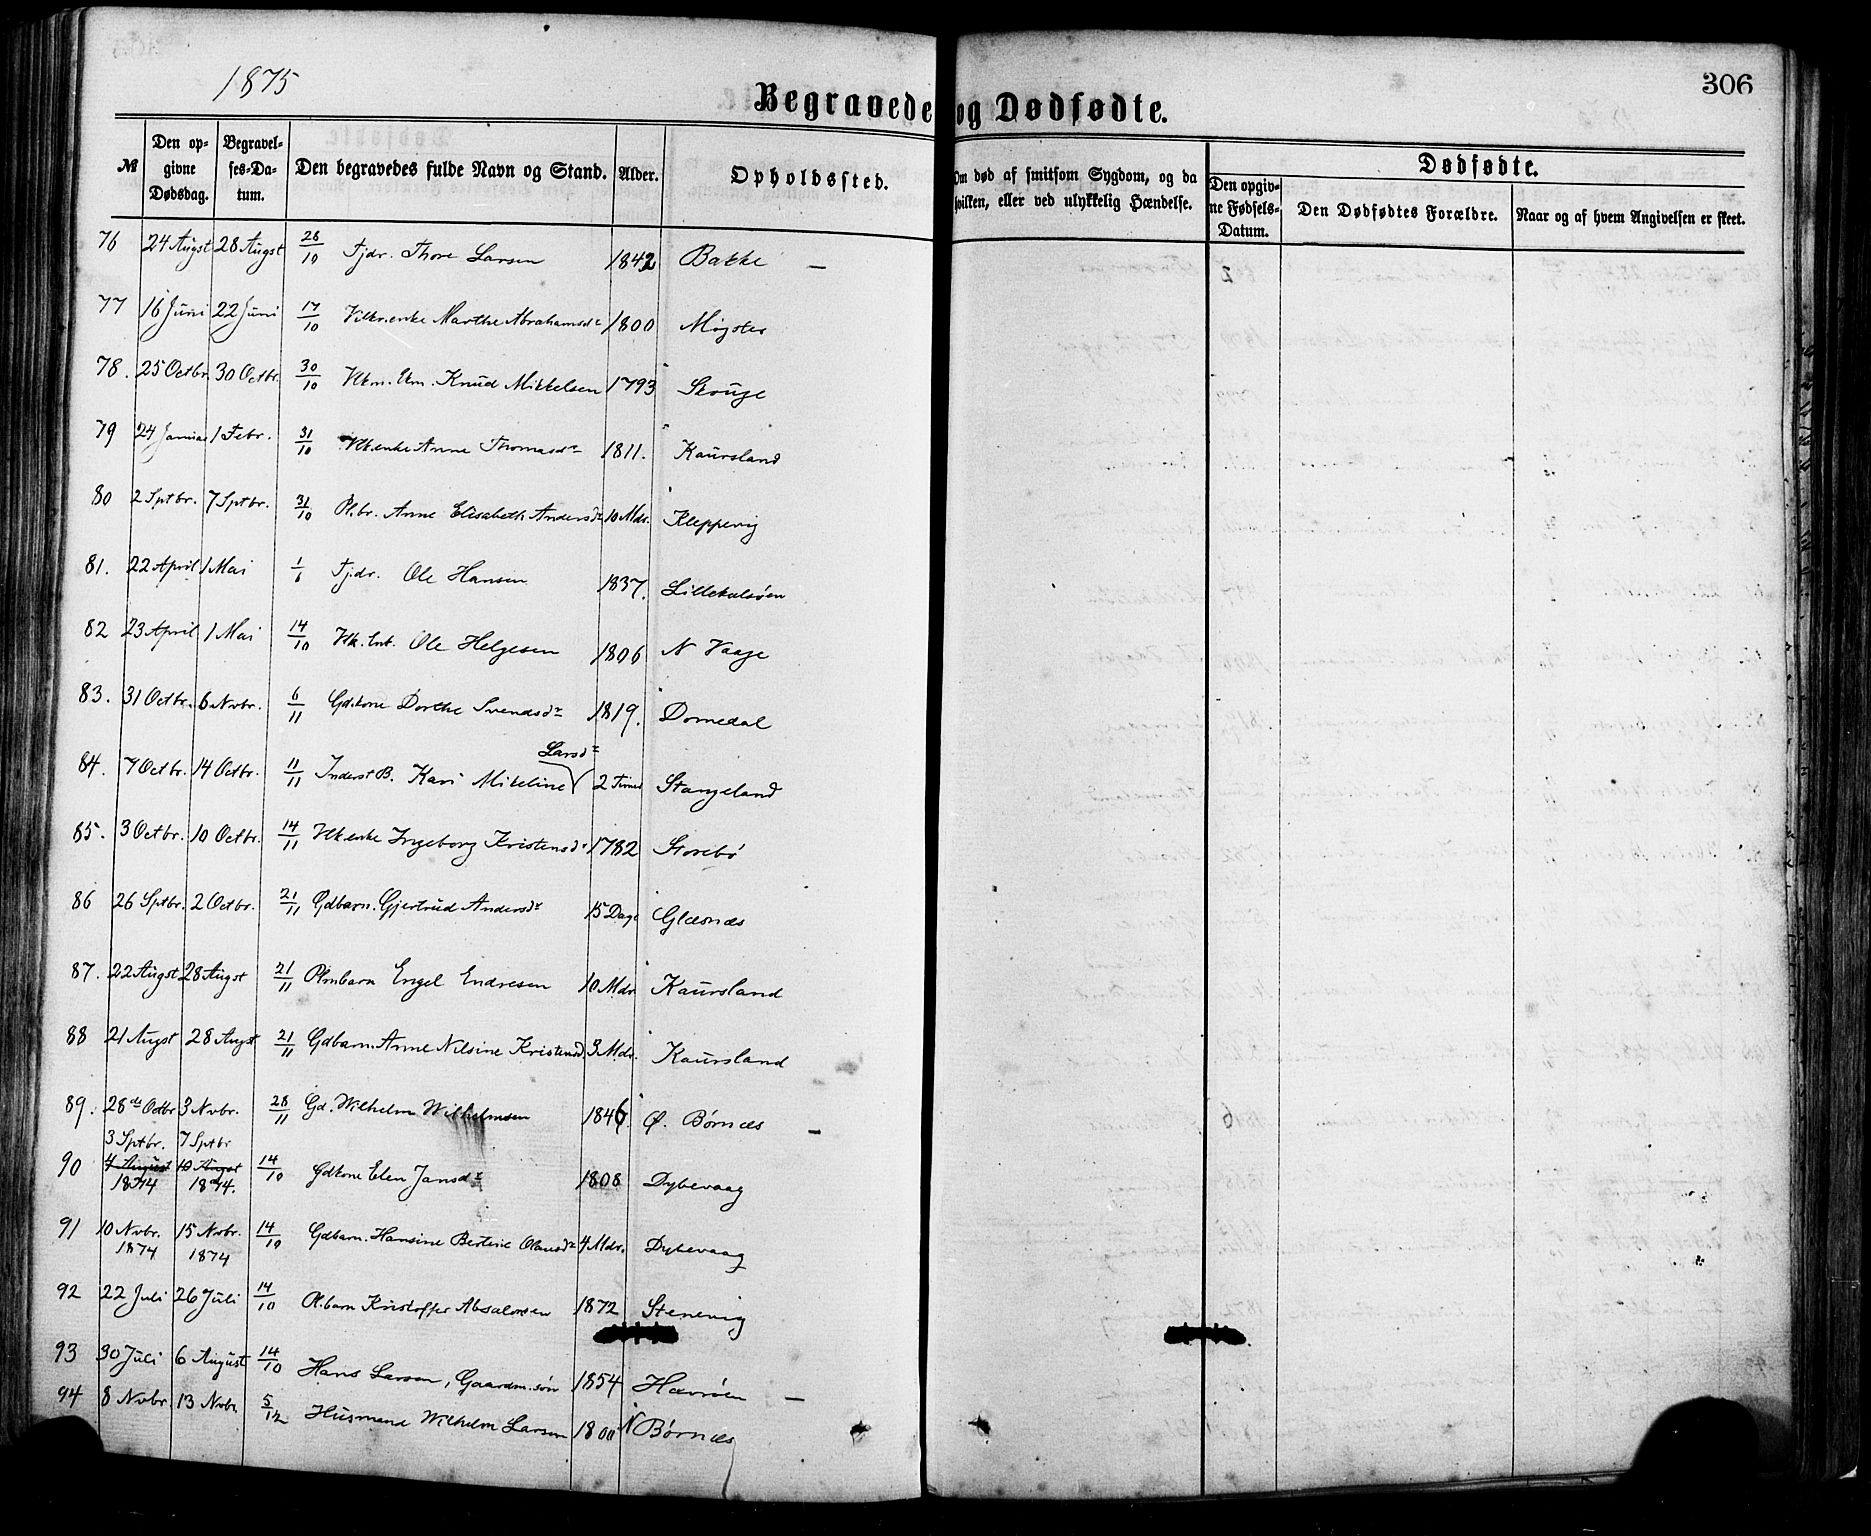 1875
306
Begravede og Dødfødte.
№ Den opgivne Dødsdag. Begravelses-Datum. Den begravedes fulde Navn og Stand. Alder. Opholdssted. Om død af smitsom Sygdom, og da hvilken, eller ved ulykkelig Hændelse. Dødfødte.
Den opgivne Fødsels-Datum. Den Dødfødtes Forældre. Naar og af hvem Angivelsen er skeet.
76 24 Augst 28 Augst 28/10 Fjdr. Thore Larsen 1842 Bakke —
77 16 Juni 22 Juni 17/10 Vilkr.enke Marthe Abrahamsdr 1800 Møgster
78. 25 Octbr. 30 Octbr. 30/10 Vlkm. Em. Knud Mikkelsen 1793 Skouge
79 24 Januar 1 Febr. 31/10 Vlk.enke Anne Thomasdr 1811. Kaursland
80 2 Sptbr. 7 Sptbr. 31/10 Pl.br. Anne Elisabeth Andersdr 10 Mdr. Kleppevig
81. 22 April 1 Mai 1/6 Fjdr. Ole Hansen 1837. Lillekalsøen
82 23 April 1 Mai 14/10 Vlk. Enk. Ole Helgesen 1806 N Vaage
83. 31 Octbr. 6 Nvbr. 6/11 Gdkone Dorthe Svendsdr 1819. Dornedal
84. 7 Octbr. 14 Octbr. 11/11 Inderst B. Kari Mikeline Larsdr 2 Timer Stangeland
85. 3 Octbr. 10 Octbr. 14/11 Vlk enke Ingeborg Kristensdr 1782 Storebø
86 26 Sptbr. 2 Octbr. 21/11 Gdbarn. Gjertrud Andersdr 15 Dage Glæsnæs
87. 22 Augst 28 Augst 21/11 Plmbarn Engel Endresen 10 Mdr Kaursland
88 21 Augst 28 Augst 21/11 Gdbarn. Anne Nilsine Kristensd. 3 Mdr. Kaursland
89. 28de Octbr 3 Nvbr. 28/11 Gd. Wilhelm Wilhelmsen 1846. Ø. Børnæs —
3 Sptbr. 7 Sptbr
90 4 August 1874 10 Augst 1874. 14/10 Gdkone Elen Jansdr 1808 Dybevaag
91 10 Nvbr. 1874 15 Nvbr. 1874 14/10 Gdbarn. Hansine Bertine Olausdr 4 Mdr. Dybevaag
92 22 Juli 26 Juli 14/10 Pl.barn Kristoffer Absalonsen 1872 Stenevig
93 30 Juli 6 August 14/10 Hans Larsen, Gaardm. søn 1854 Hævrøen —
94 8 Nvbr. 13 Nvbr. 5/12 Husmand Wilhelm Larsen 1800 N Børnæs